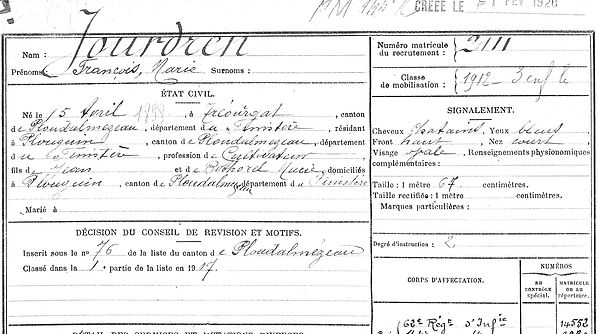 CRÉÉE LE 1 FEV 1920
Nom : Jourdren
Prénoms : François, Marie Surnoms :
Numéro matricule du recrutement : 2111
Classe de mobilisation : 1912
ÉTAT CIVIL.
Né le 15 Avril à Tréourgat, canton
de Ploudalmezeau, département du Finistère, résidant
à Plouguin, canton de Ploudalmezeau, département
du Finistère, profession de Cultivateur
fils de Jean et de Marie, domiciliés
à Plouguin, canton de Ploudalmezeau département du Finistère
Marié à
SIGNALEMENT.
Cheveux châtains Yeux bleus
Front haut Nez court
Visage pâle, Renseignements physionomiques
complémentaires :
Taille : 1 mètre 67 centimètres.
Taille rectifiée : 1 mètre centimètres.
Marques particulières :
DÉCISION DU CONSEIL DE REVISION ET MOTIFS.
Inscrit sous le n° 76 de la liste du canton de Ploudalmézeau
Classé dans la 1 partie de la liste en 1917
Degré d'instruction : 2
CORPS D'AFFECTATION.
NUMÉROS
AU CONTRÔLE spécial.
MATRICULE OU AU répertoire.
62e Régt d'Infie 14552